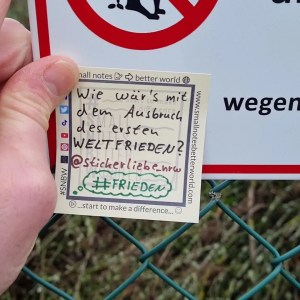 wegen
small notes better world
Wie wär's mit
dem Ausbruch
des ersten
WELTFRIEDEN?
@stickerliebe.nrw
#FRIEDEN
...start to make a difference...
#SNBW
www.smallnotesbetterworld.com